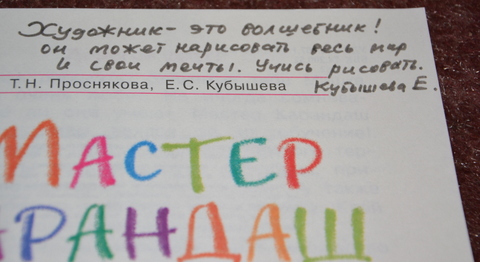 Художник - это волшебник!
он может нарисовать весь мир
и свои мечты. Учись рисовать.
Т.Н. Проснякова, Е.С. Кубышева Кубышева Е.
МАСТЕР
АРАНДАШ